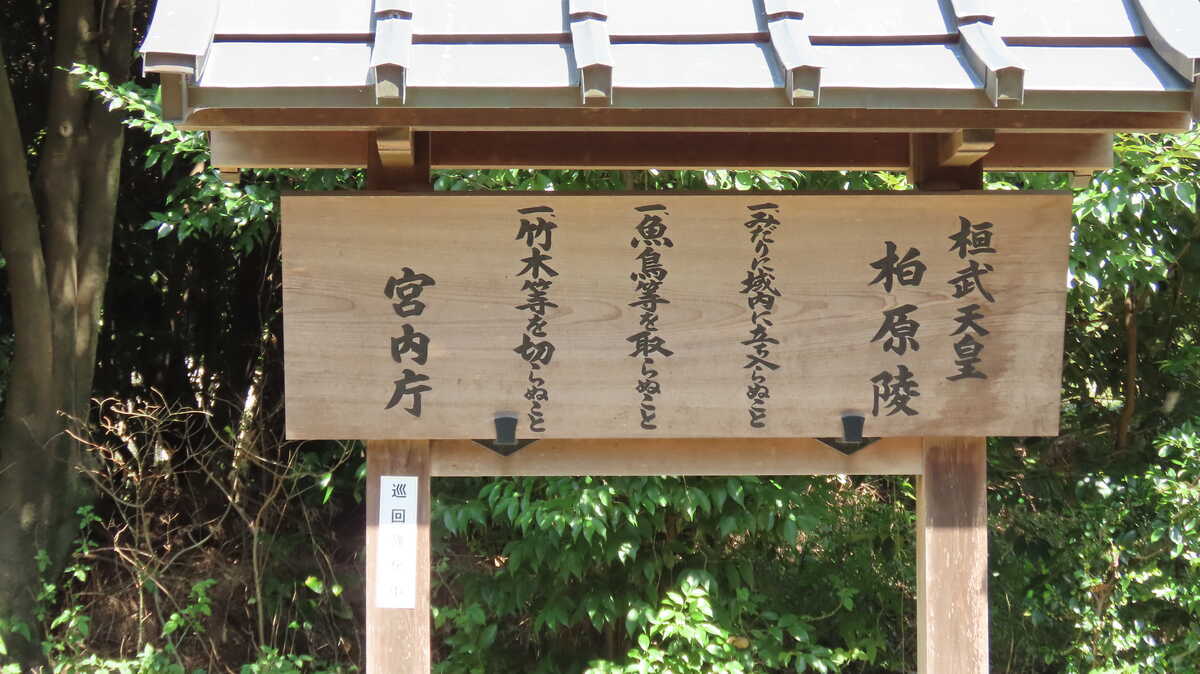 桓武天皇
柏原陵
一、みだりに域内に立ち入らぬこと
一、魚鳥等を取らぬこと
一、竹木等を切らぬこと
宮内庁
巡回